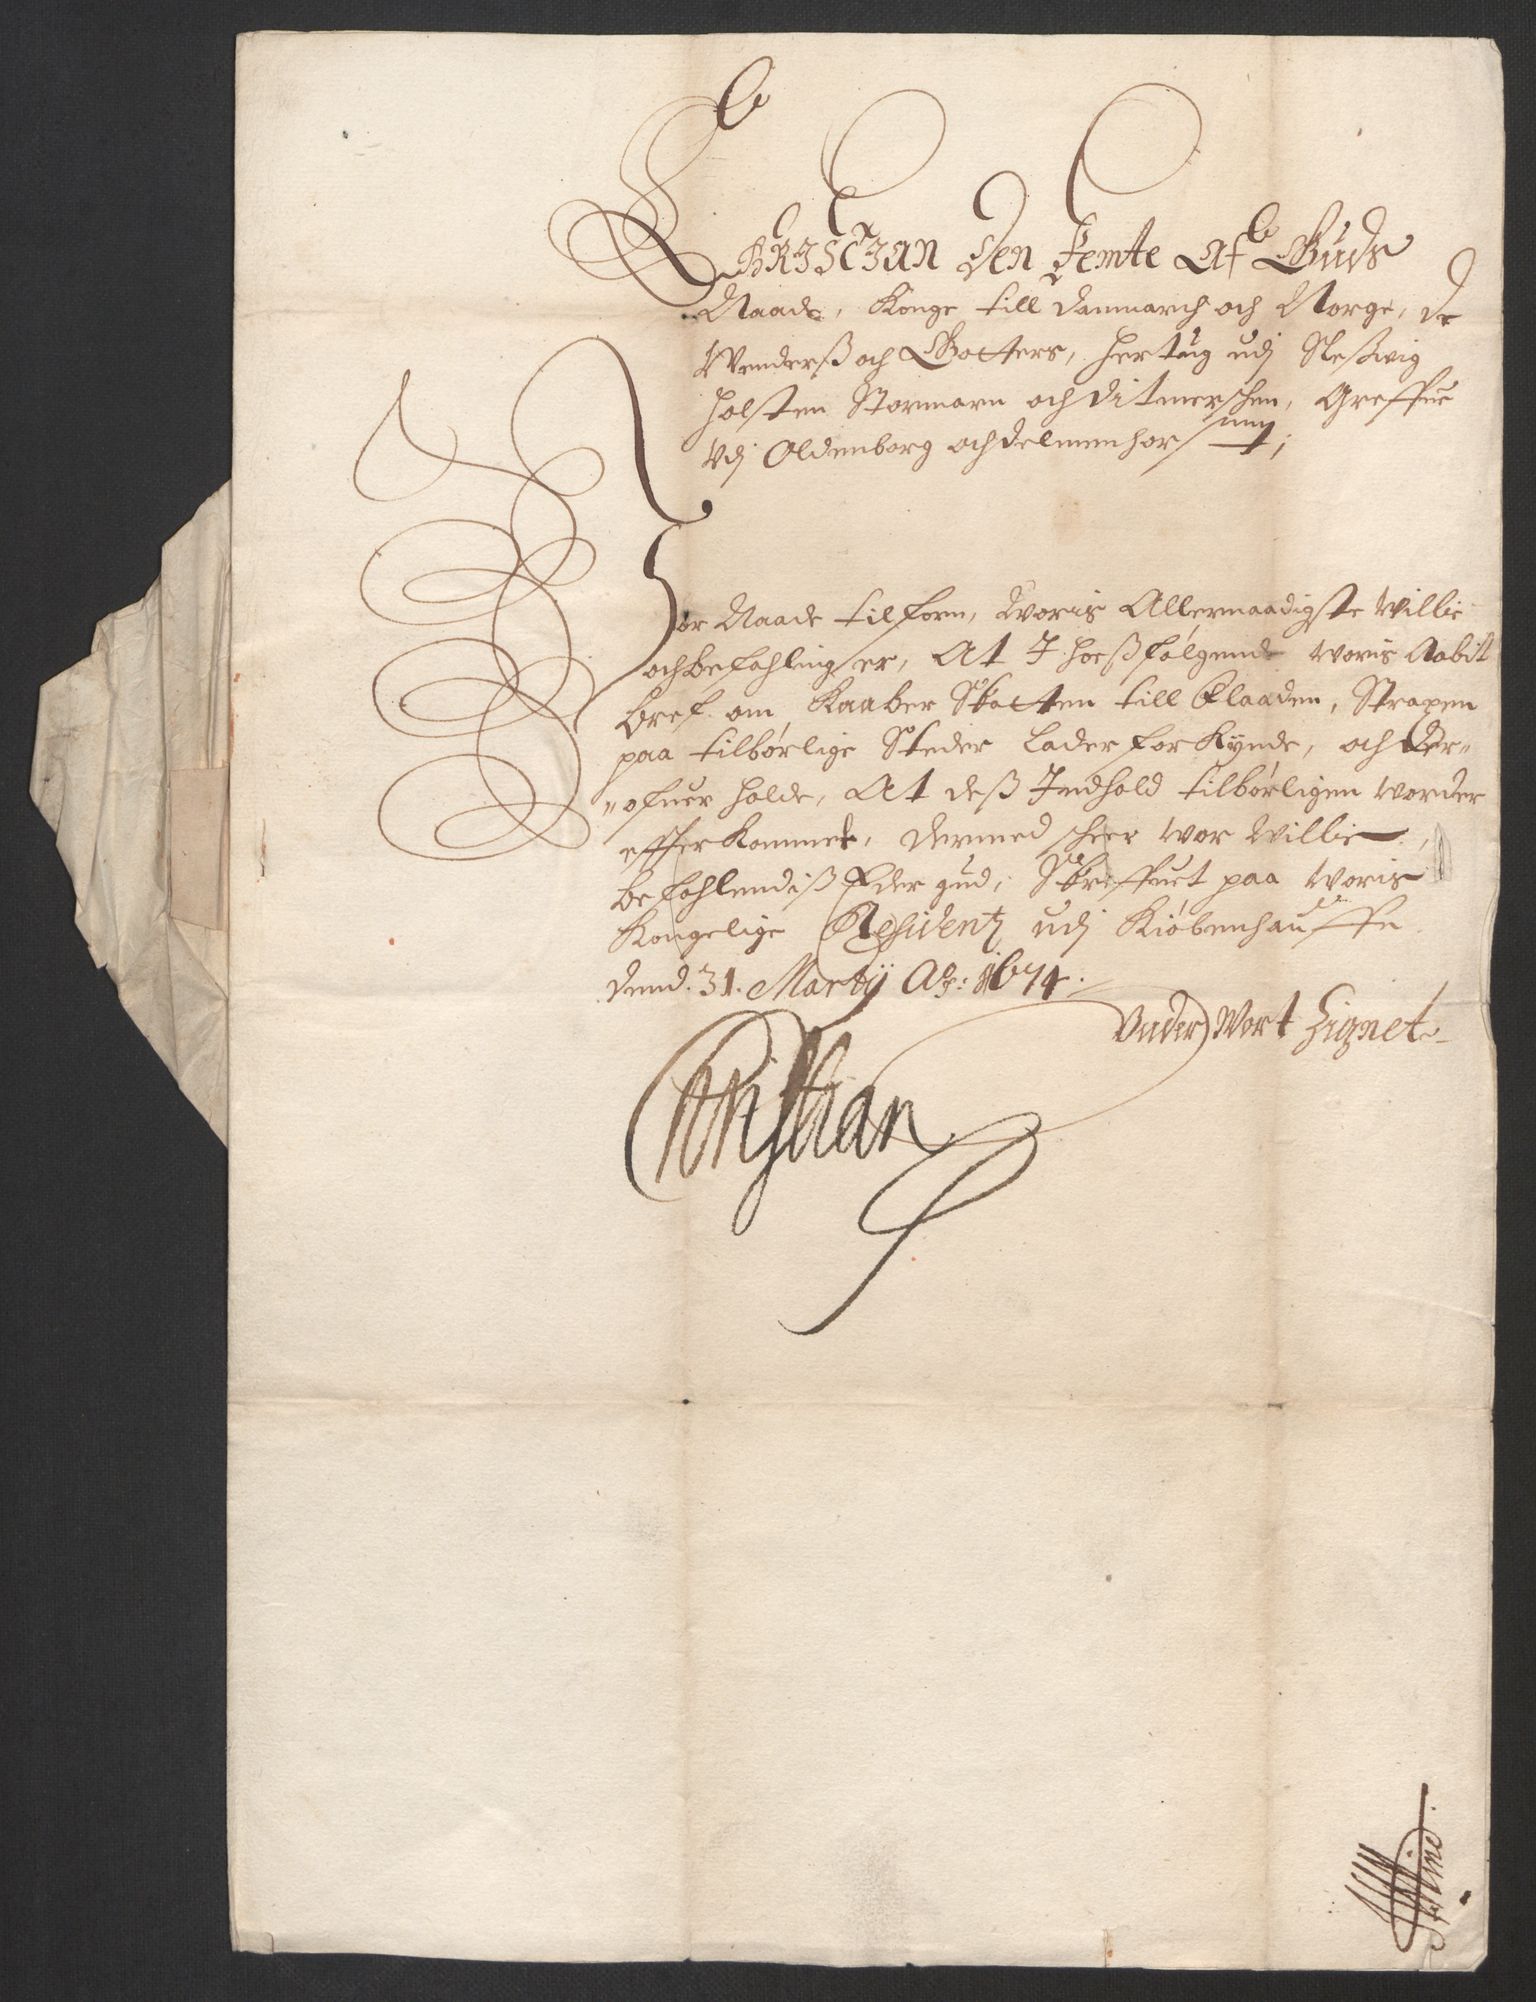 CHRISTIAN Den Femte Af Guds
Naade, Konge till Danmarch och Norge, de
Wenders och Gotters, Hertug udj Sleßwig
Holsten Stormarn och Ditmerschen, Greffue
Vdj Oldenborg och Delmenhorst;
Vor Naade tilforn, Woris Allernaadigste Willie
och befahling er, At I hoßfølgende Woris Aabit
bref om Kaaber Skatten till Flaaden, Strapen
paa tilbørlige Steder Lader forKynde, och der-
ofuer holde, At deß Indhold tilbørligen worder
efterkommet, Dermed scheer wor Willie,
befahlendiß Eder gud, Skreffuet paa Woris
Kongelige Residentz udj Kiøbenhauffn
dend. 31. Martij Ao: 1674.
Under Wort Zignet
Christian